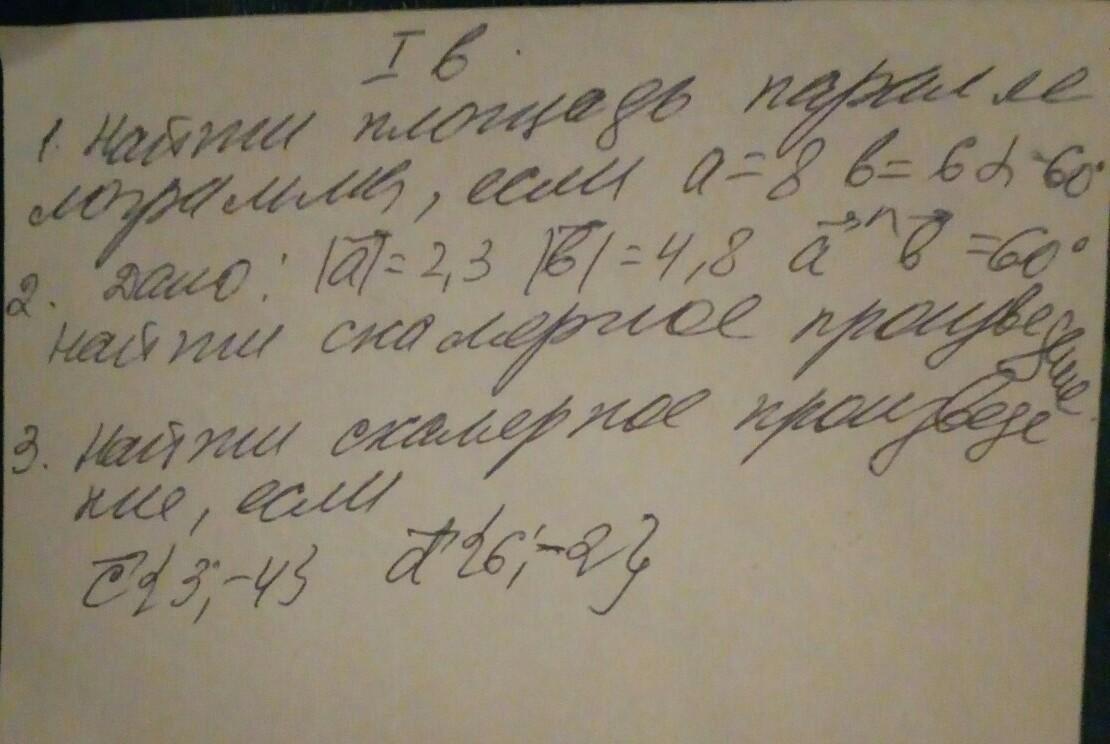 I в.
1. Найти площадь паралле
лограмма, если a=8 в=6 α-60°
2. Дано: |a⃗|=2,3 |b⃗|=4,8 a⃗^b⃗=60°
Найти скалярное произведение.
3. Найти скалярное произведе
ние, если
c⃗{3;-4} d⃗{6;-2}